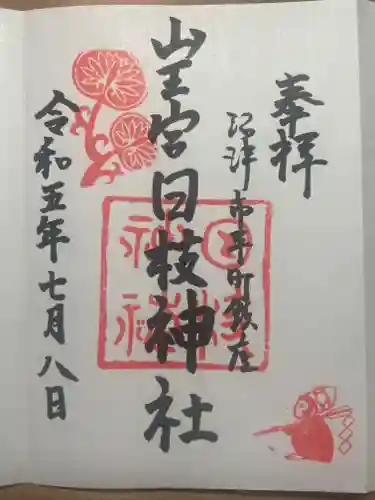 奉拝
沼津市平町鎮座
山王宮日枝神社
令和五年七月八日